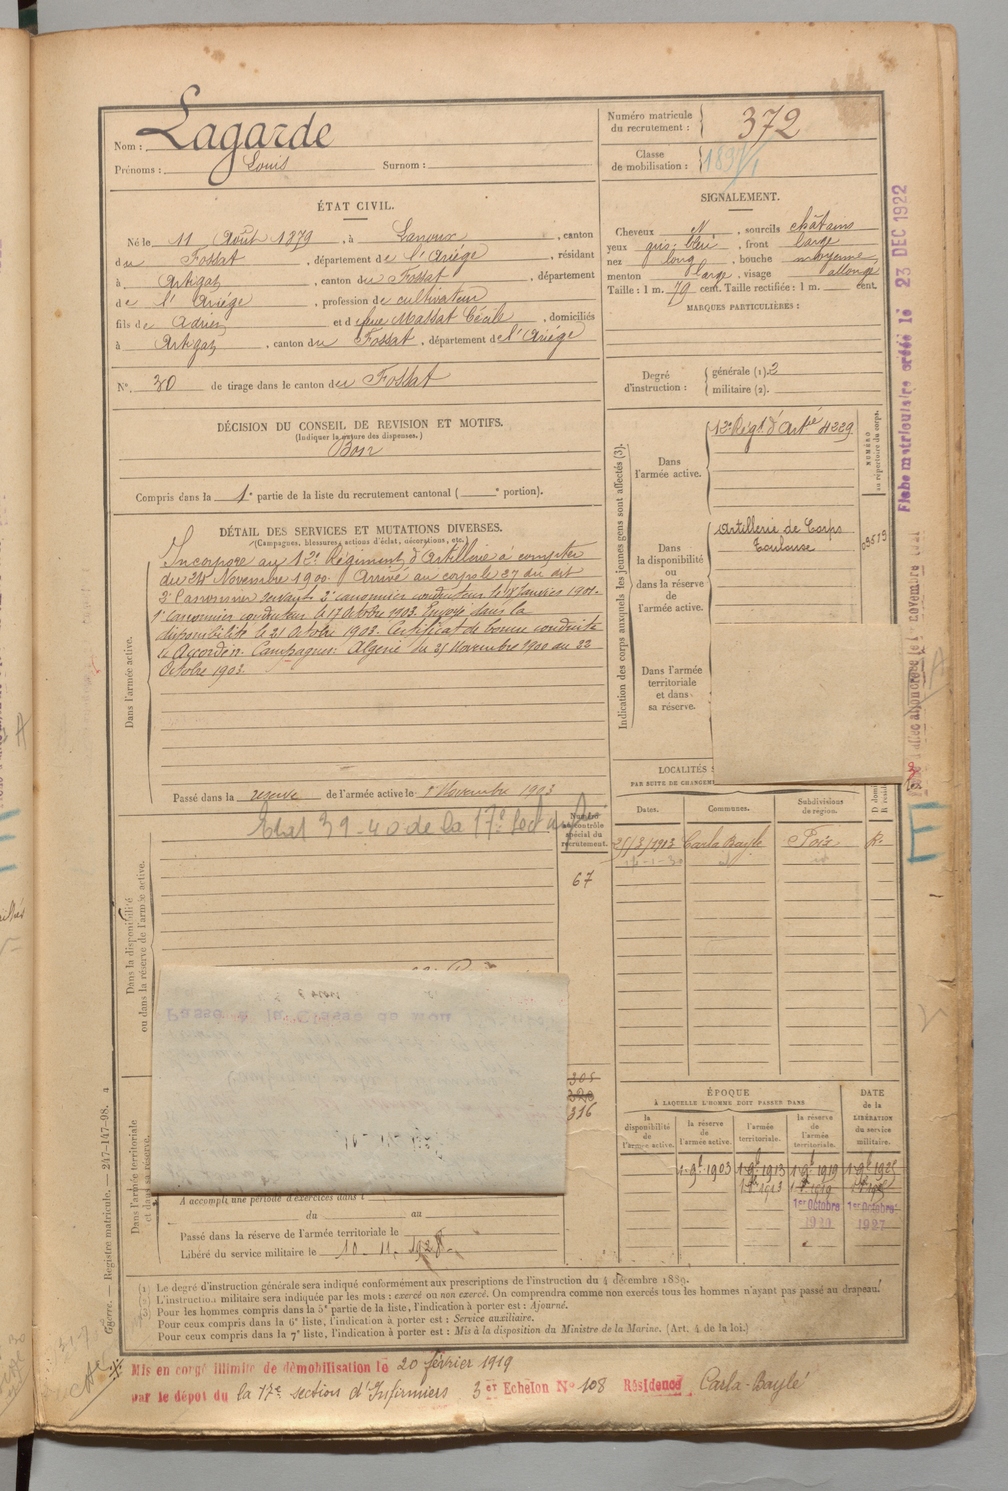 Nom : Lagarde
Prénoms : Louis Surnom :
Numéro matricule du recrutement : 372
Classe de mobilisation :
ÉTAT CIVIL.
Né le 11 Août 1879, à Lanoux, canton
du Fossat, département de l'Ariège, résidant
à Artigat, canton du Fossat, département
de l'Ariège, profession de cultivateur
fils de Adrien et d feue Massat Cécile, domiciliés
à Artigat, canton du Fossat, département de l'Ariège
N° 30 de tirage dans le canton du Fossat
SIGNALEMENT.
Cheveux N, sourcils châtains
yeux gris bleu, front large
nez long, bouche moyenne
menton large, visage allongé
Taille : 1 m. 79 cent. Taille rectifiée : 1 m. cent.
MARQUES PARTICULIÈRES :
Degré d'instruction : générale (1). 3
militaire (2).
DÉCISION DU CONSEIL DE REVISION ET MOTIFS.
(Indiquer la nature des dispenses.)
Bon
Compris dans la 1e partie de la liste du recrutement cantonal ( e portion).
DÉTAIL DES SERVICES ET MUTATIONS DIVERSES.
(Campagnes, blessures, actions d'éclat, décorations, etc.)
Dans l'armée active.
Incorporé au 12e Régiment d'Artillerie à compter
du Novembre 1900. Arrivé au corps le 27 du dit
2e Canonnier servant 2e canonnier conducteur le 18 Janvier 1901.
1er Canonnier conducteur le 17 Octobre 1903. Envoyé dans la
disponibilité le 21 Octobre 1903. Certificat de bonne conduite
Accordé. Campagnes: Algérie du 25 Novembre 1900 au 22
Octobre 1903.
Passé dans la réserve de l'armée active le 1er Novembre 1903
Indication des corps auxquels les jeunes gens sont affectés (3).
NUMÉRO au répertoire du corps.
Dans l'armée active.
12e Régt d'Artie 4229
Dans la disponibilité ou dans la réserve de l'armée active.
Artillerie de Corps
Toulouse
Dans l'armée territoriale et dans sa réserve.
LOCALITÉS
PAR SUITE DE CHANGEM
Dates. Communes. Subdivisions de région.
25/3/1913 Carla Bayle Foix R.
Etat 39-40 de la 17e Sect
Numéro au contrôle spécial du recrutement.
67
Dans la disponibilité ou dans la réserve de l'armée active.
Passé à la Classe de
305
320
316
Dans l'armée territoriale et dans sa réserve.
A accompli une période d'exercices dans l
du au
Passé dans la réserve de l'armée territoriale le
Libéré du service militaire le 10-11-1928
ÉPOQUE
À LAQUELLE L'HOMME DOIT PASSER DANS
DATE de la LIBÉRATION du service militaire.
la disponibilité de l'armée active.
la réserve de l'armée active.
l'armée territoriale.
la réserve de l'armée territoriale.
1 9b 1903 1 9b 1913 1 9b 1919 1 9b 1925
1er Octobre 1er Octobre
1927
(1) Le degré d'instruction générale sera indiqué conformément aux prescriptions de l'instruction du 4 décembre 1889.
(2) L'instruction militaire sera indiquée par les mots : exercé ou non exercé. On comprendra comme non exercés tous les hommes n'ayant pas passé au drapeau.
(3) Pour les hommes compris dans la 5e partie de la liste, l'indication à porter est : Ajourné.
Pour ceux compris dans la 6e liste, l'indication à porter est : Service auxiliaire.
Pour ceux compris dans la 7e liste, l'indication à porter est : Mis à la disposition du Ministre de la Marine. (Art. 4 de la loi.)
Mis en congé illimité de démobilisation le 20 février 1919
par le dépôt du la 17e section d'Infirmiers 3er Echelon N° 108 Résidence Carla-Bayle
Guerre. — Registre matricule. — 247-147-98.
Fiche matriculaire créée le 23 DEC 1922